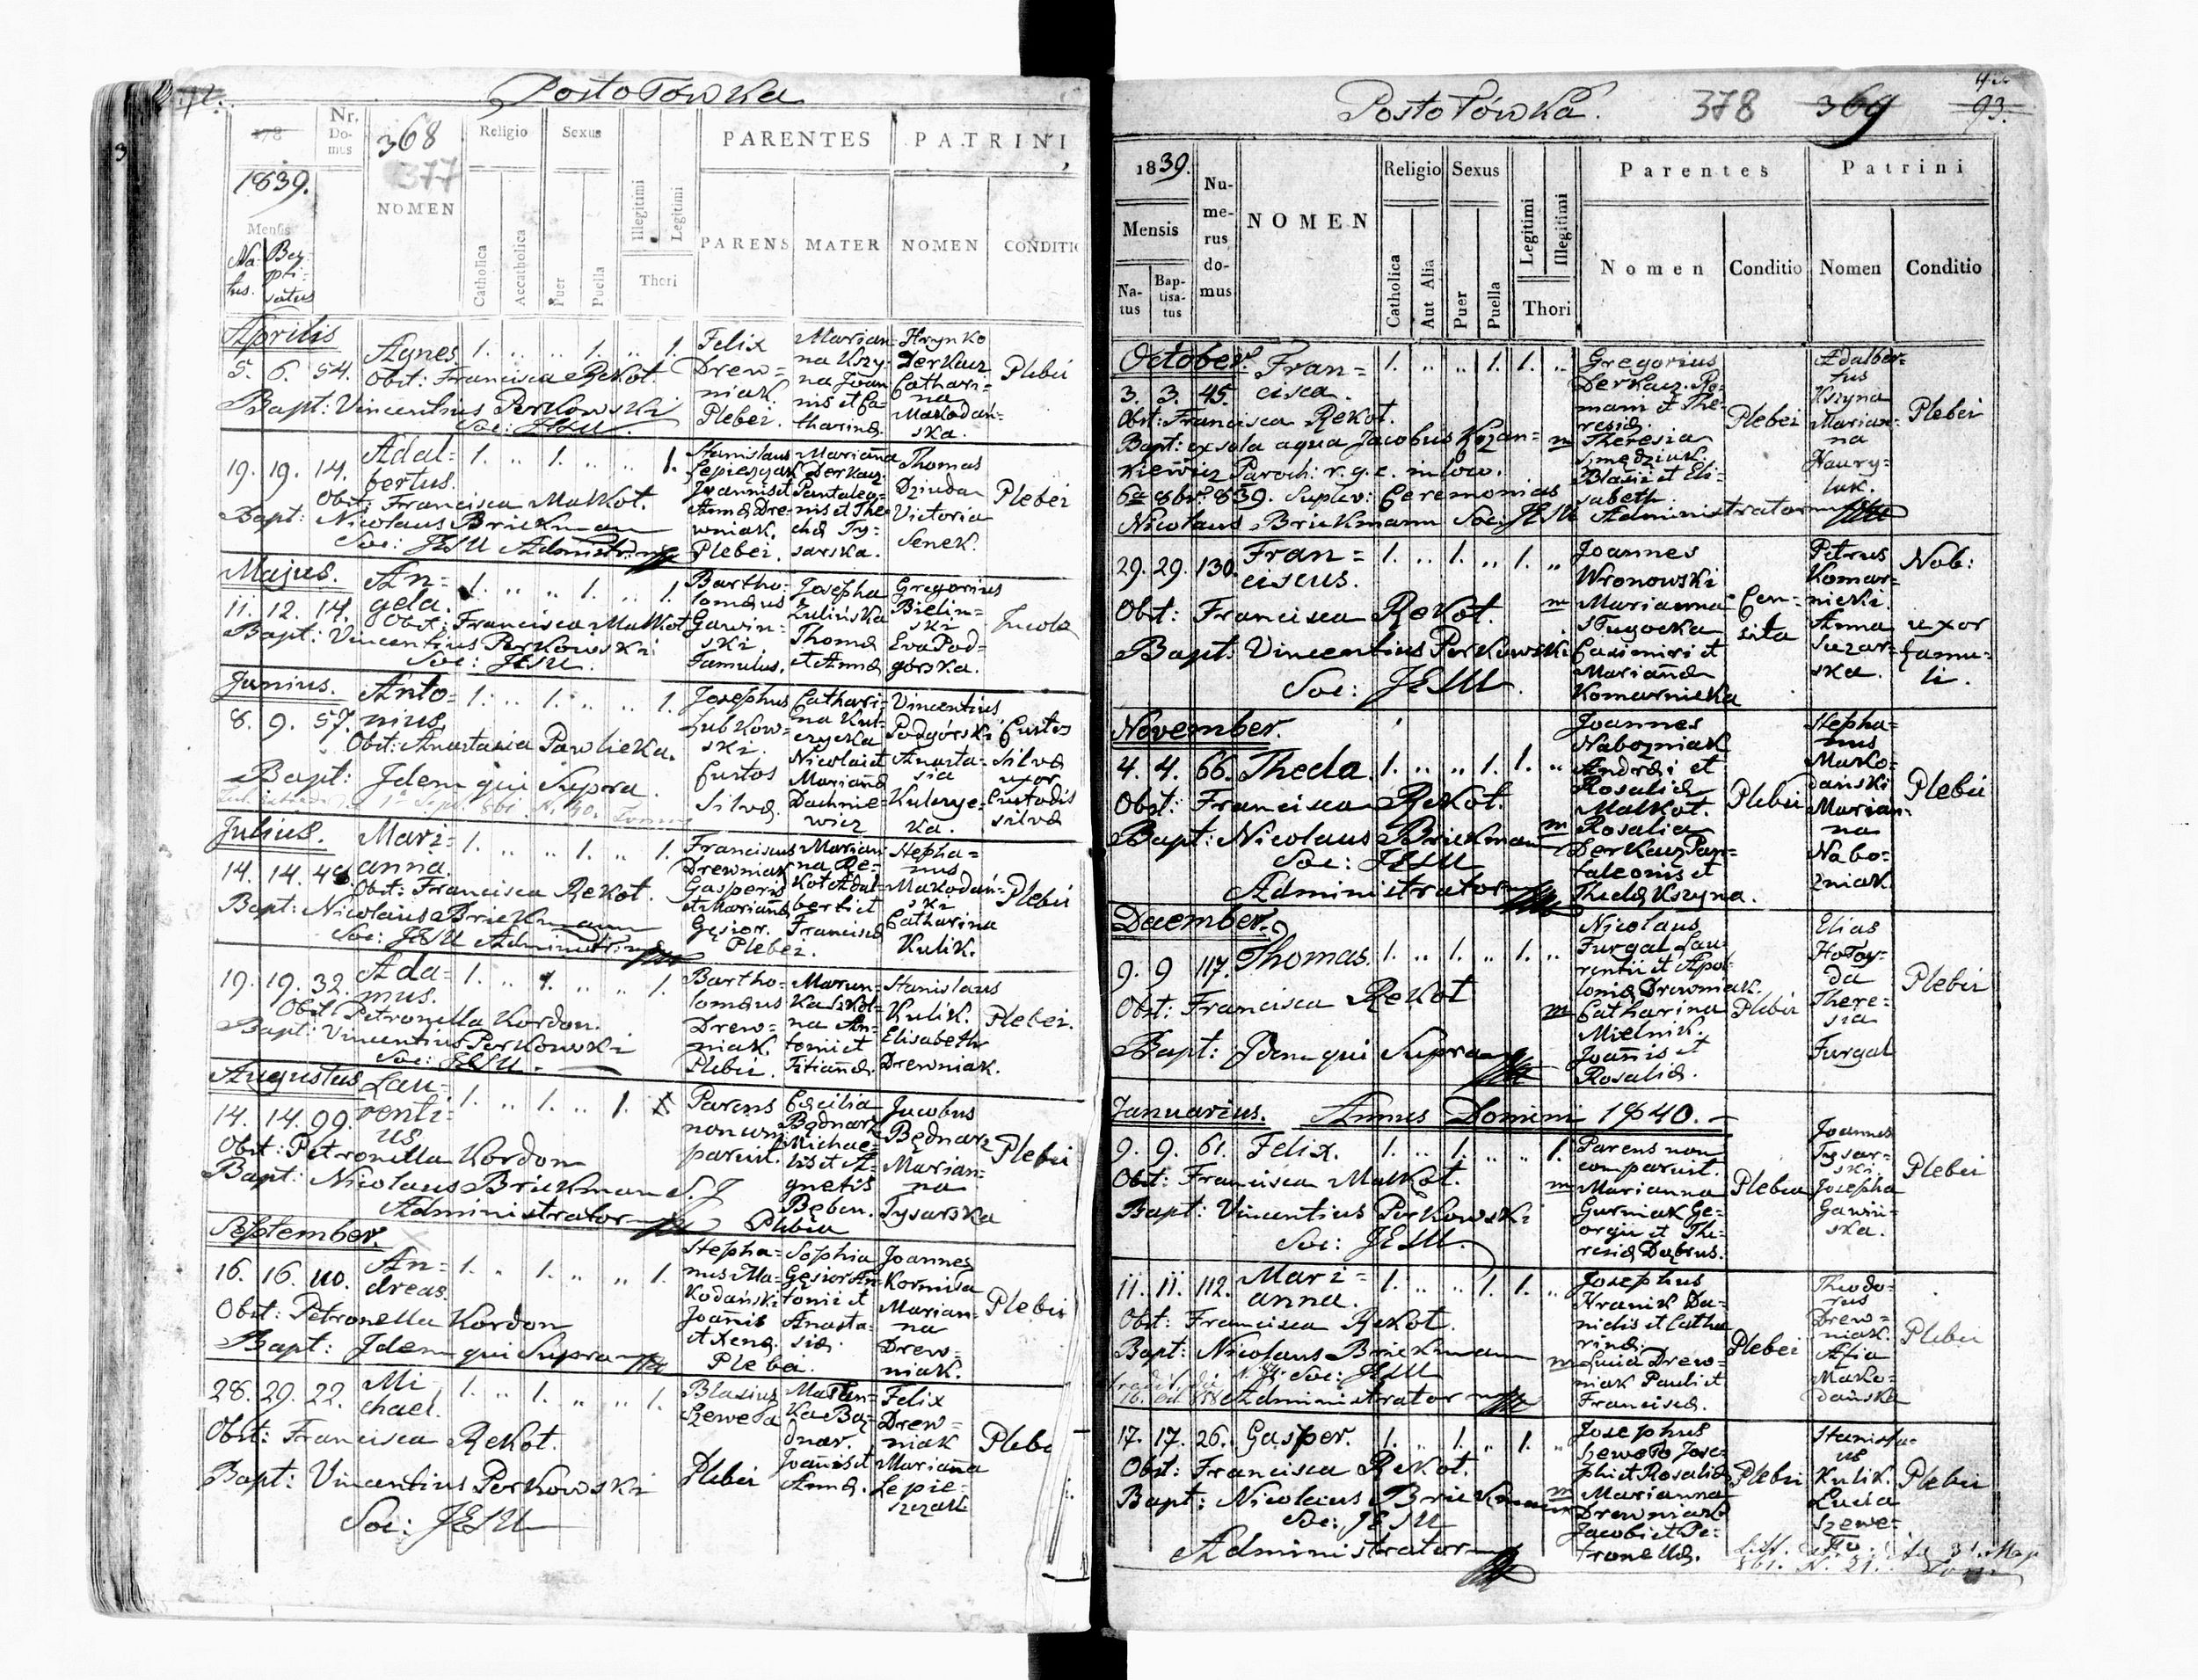 Postołówka
378
Nr. Do- mus
368
377
Religio
Sexus
PARENTES
PATRINI
1839.
NOMEN
Illegitimi
Legitimi
Mensis
Na- tus.
Bap- ti- satus
Catholica
Accatholica
Puer
Puella
Thori
PARENS
MATER
NOMEN
CONDITIO
Aprilis
5. 6. 54. Agnes 1. 1. 1.
Felix Drew= niak. Plebei.
Marian= na Kszy= na Joan nis et Ca= tharinæ.
Hrynko Derkacz Cathari= na Makodań= ska.
Plebei
Obst: Francisca Rekot.
Bapt: Vincentius Perkowski
Soc: JESU.
19. 19. 14. Adal= bertus. 1. 1. 1.
Stanislaus Joannis et Annæ Dre= wniak. Plebei.
Marianna Derkacz Pantaleo= nis et The= clæ Ty= sarska.
Thomas Dziuda Victoria Senek.
Plebei
Obst: Francisca Malkot.
Bapt: Nicolaus Brickmann
Soc: JESU Administr:
Majus.
11. 12. 14. An= gela. 1. 1. 1.
Bartho= lomæus Gawin= ski. Famulus.
Josepha Zulińska Thomæ et Annæ
Gregorius Bielin= ski Eva Pod= górska.
Obst: Francisca Malkot
Bapt: Vincentius Perkowski
Soc: JESU.
Junius.
8. 9. 57. Anto= nius. 1. 1. 1.
Josephus Lubkow= ski. Custos Silvæ.
Cathari= na Kul= czycka Nicolai et Mariannæ Dachnie= wicz
Vincentius Podgórski Anasta= sia Kulczyc= ka.
Custos silvæ uxor Custodis silvæ
Obst: Anastasia Pawlicka.
Bapt: Idem qui Supra.
Julius.
14. 14. 48. Mari= anna. 1. 1. 1.
Franciscus Drewniak Gasperis et Mariannæ Gęsior.
Marian= na Re= kot Adal= berti et Franciscæ
Plebei.
Stepha= nus Makodań= ski Catharina Kulik.
Plebei
Obst: Francisca Rekot.
Bapt: Nicolaus Brickmann
Soc: JESU Administr:
19. 19. 32. Ada= mus. 1. 1. 1.
Bartho= lomæus Drew= niak. Plebei.
Stanislaus Kulik. Elisabeth Drewniak.
Plebei.
Obst: Petronella Kordon.
Bapt: Vincentius Perkowski
Soc: JESU.
Augustus
14. 14. 99. Lau= renti= us. 1. 1. 1.
Parens non com paruit.
Cæcilia Bednarz Michae= lis et A= gnetis Bęben.
Plebea
Jacobus Bednarz Marian= na Tysarska
Plebei
Obst: Petronella Kordon
Bapt: Nicolaus Brickmann S. J
Administrator
September.
16. 16. 110. An= dreas. 1. 1. 1.
Stepha= nus Ma= kodański Joannis et Xenæ.
Sophia Gęsior An= tonii et Anasta= siæ.
Plebei.
Joannes Kormiła Marian= na Drew= niak.
Plebei
Obst: Petronella Kordon
Bapt: Idem qui Supra
28. 29. 22. Mi= chael. 1. 1. 1.
Blasius Szeweła Plebei
Joannis et Annæ.
Felix Drew= niak Marianna Lepie= szczak
Plebei
Obst: Francisca Rekot.
Bapt: Vincentius Perkowski
Soc: JESU
Postołówka.
378
369
93.
1839.
Nu- me- rus do- mus
NOMEN
Religio
Sexus
Legitimi
Illegitimi
Parentes
Patrini
Mensis
Na- tus
Bap- tisa- tus
Catholica
Aut Alia
Puer
Puella
Thori
Nomen
Conditio
Nomen
Conditio
October.
3. 3. 45. Fran= cisca. 1. 1. 1.
Gregorius Derkacz. Ro= mani et The= resiæ.
m Theresia Smędziuk. Blasii et Eli= sabeth.
Plebei
Adalber= tus Kszyna Marian= na Hawry= luk.
Plebei
Obst: Francisca Rekot.
Bapt: ex sola aqua Jacobus Kozan=
kiewicz Paroch: r. g. c. in loco.
6ta 8br: 839. Suplev: Ceremonias
Nicolaus Brickmann Soc: JESU Administrator
29. 29. 130. Fran= ciscus. 1. 1. 1.
Joannes Wronowski
m Marianna Sługocka Casimiri et Mariannæ Komarnicka
Con= sita
Petrus Komar= nicki. Anna Sazar= ska.
Nob: uxor famu= li.
Obst: Francisca Rekot.
Bapt: Vincentius Perkowski
Soc: JESU.
November.
4. 4. 66. Thecla. 1. 1. 1.
Joannes Nabozniak Andreæ et Rosaliæ Malkot.
m Rosalia Derkacz Pan= taleonis et Theclæ Kszyna.
Plebei
Stepha= nus Mako= dański Marian= na Nabo= zniak.
Plebei
Obst: Francisca Rekot.
Bapt: Nicolaus Brickmann
Soc: JESU
Administrator
December.
9. 9 117. Thomas. 1. 1. 1.
Nicolaus Furgal Lau= rentii et Apol= loniæ Drewniak.
m Catharina Mielnik. Joannis et Rosaliæ.
Plebei
Elias Hołow= da There= sia Furgal
Plebei
Obst: Francisca Rekot
Bapt: Idem qui Supra
Januarius. Annus Domini 1840.
9. 9. 61. Felix. 1. 1. 1.
Parens non comparuit.
m Marianna Gurniak Ge= orgii et The= resiæ Dąbrus.
Plebea
Joannes Tysar= ski. Josepha Gawin= ska.
Plebei
Obst: Francisca Malkot.
Bapt: Vincentius Perkowski
Soc: JESU.
11. 11. 112. Mari= anna. 1. 1. 1.
Josephus Hranik Da= nielis et Catha rinæ.
m Lucia Drew= niak Pauli et Franciscæ.
Plebei
Theodo= rus Drew= niak. Afia Mako= dańska
Plebei
Obst: Francisca Rekot.
Bapt: Nicolaus Brickmann
Soc: JESU
Administrator
17. 17. 26. Gasper. 1. 1. 1.
Josephus Szeweło Jose= phi et Rosaliæ
m Marianna Drewniak Jacobi et Pe= tronellæ.
Plebei
Stanisla= us Kulik. Lucia Szewe= ło.
Plebei
Obst: Francisca Rekot.
Bapt: Nicolaus Brickmann
Soc: JESU
Administrator
861. N. 21.